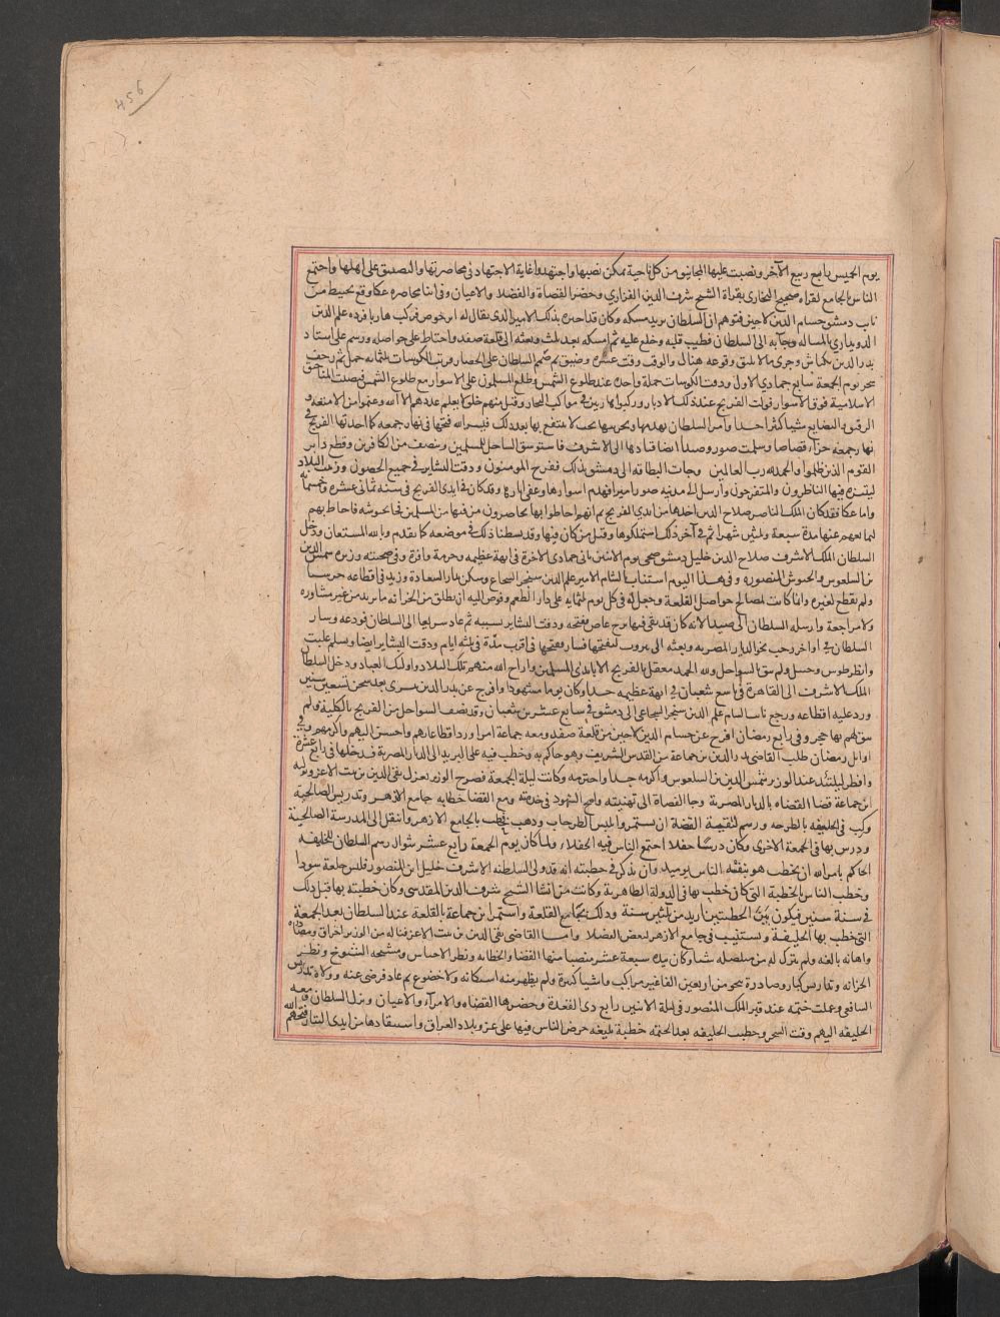 456
يوم الخميس رابع ربيع الآخر ونصبت عليها المجانيق من كل ناحية يمكن نصبها واجتهدوا غاية الاجتهاد في محاصرتها والتضييق على اهلها واجتمع
الناس بالجامع لقراه صحيح البخاري بقراة الشيخ شرف الدين الفزاري وحضر القضاة والفضلا والاعيان وفي اثنا محاصره عكا وقع تخبيط من
نايب دمشق حسام الدين لاجين فتوهم ان السلطان يريد مسكه وكان قد اخبره بذلك الامير الذي يقال له ابو خرص فركب هاربا فرده علم الدين
الدويداري بالمساله وجا به الى السلطان فطيب قلبه وخلع عليه ثم امسكه بعد ثلث وبعثه الى قلعة صفد واحتاط على حواصله ورسم على استاد
بدر الدين بكداش وجرى ما لا يليق وقوعه هنالك والوقت وقت عسره وضيق ثم صمم السلطان على الحصار فرتب الكوسات ثلثمايه حمل ثم زحف
سحر يوم الجمعة سابع جمادي الاولى ودقت الكوسات جملة واحدة عند طلوع الشمس وطلع المسلمون على الاسوار مع طلوع الشمس ونصبت السناجق
الاسلامية فوق الاسوار فولت الفرنج عند ذلك الادبار وركبوا هاربين في مراكب التجار وقتل منهم خلق لا يعلم عددهم الا الله وغنموا من الامتعة و
الرقيق والبضايع شيا كثيرا جدا وامر السلطان بهدمها وتخريبها بحيث لا ينتفع بها بعد ذلك فيسر الله فتحها في نهار جمعه كما اخذتها الفرنج في
نهار جمعه جزاء وقصاصا وسلمت صور وصيدا ايضا قيادها الى الاشرف فاستوسق الساحل للمسلمين وتنضف من الكافرين وقطع دابر
القوم الذين ظلموا والحمد لله رب العالمين وجات البطاقه الى دمشق بذلك ففرح المومنون ودقت البشاير في جميع الحصون وزينت البلاد
ليتنزه فيها الناظرون والمتفرجون وارسل الى مدينه صور اميرا فهدم اسوارها وعفى اثارها وقد كان في ايدي الفرنج في سنه ثماني عشره وخمسمايه
واما عكا فقد كان الملك الناصر صلاح الدين اخذها من ايدي الفرنج ثم انهم احاطوا بها يحاصرون من فيها من المسلمين فجا بجيوشه فاحاط بهم
ليمانعهم عنها مدة سبعة وثلثين شهرا ثم في آخر ذلك استملكوها وقتل من كان فيها وقد بسطنا ذلك في موضعه كما تقدم وبالله المستعان ودخل
السلطان الملك الاشرف صلاح الدين خليل دمشق ضحى يوم الاثنين ثاني جمادى الاخرة في ابهة عظيمه وحرمة وافرة وفي صحبته وزيره شمس الدين
بن السلعوس والجيوش المنصوره وفي هذا اليوم استناب بالشام الامير علم الدين سنجر الشجاعي وسكن بدار السعادة وزيد في اقطاعه حرستا
ولم يقطع لغيره وانما كانت لمصالح حواصل القلعة وجعل له في كل يوم ثلثمايه على دار الطعم وفوض اليه ان يطلق من الخزانه ما يريد من غير مشاوره
ولا مراجعة وارسله السلطان الى صيدا لانه كان قد بقي فيها برج عاص ففتحه ودقت البشاير بسببه ثم عاد سريعا الى السلطان فودعه وسار
السلطان في اواخر رجب نحو الديار المصريه وبعثه الى بيروت ليفتحها فسار ففتحها في اقرب مدّة في ثلثه ايام ودقت البشاير ايضا وتسلم عثليت
وانطرطوس وجبيل ولم يبق بالسواحل ولله الحمد معقل للفرنج الا بايدي المسلمين واراح الله منهم تلك البلاد واوليك العباد ودخل السلطان
الملك الاشرف الى القاهرة في تاسع شعبان في ابهة عظيمه جدا وكان يوما مشهودا وافرج عن بدر الدين بيسري بعد سجن تسعين سنين
ورد عليه اقطاعه ورجع نايب الشام علم الدين سنجر الشجاعي الى دمشق في سابع عشرين شعبان وقد نضف السواحل من الفرنج بالكلية ولم
يبق لهم بها حجر وفي رابع رمضان افرج عن حسام الدين لاجين من قلعة صفد ومعه جماعة امرا ورد اقطاعاتهم واحسن اليهم واكرمهم وفي
اوائل رمضان طلب القاضي بدر الدين بن جماعة من القدس الشريف وهو حاكم به وخطيب فيه على البريد الى الديار المصرية فدخلها في رابع عشره
وافطر ليلتئذ عند الوزير شمس الدين بن السلعوس واكرمه جدا واحترمه وكانت ليلة الجمعة فصرح الوزير بعزل تقي الدين بن بنت الاعز وتوليه
ابن جماعة قضا القضاه بالديار المصرية وجا القضاة الى تهنيته واصبح الشهود في خدمته ومع القضا خطابه جامع الازهر وتدريس الصالحية
وركب في الخليفه بالطرحه ورسم لبقيمة القضاة ان يستمروا بلبس الطرحات وذهب فخطب بالجامع الازهر وانتقل الى المدرسة الصالحية
ودرس بها في الجمعة الاخرى وكان درسًا حفلا اجتمع الناس فيه الحفلا ولما كان يوم الجمعة رابع عشر شوال رسم السلطان للخليفه
الحاكم بامر الله ان يخطب هو بنفسه الناس يوميذ وان يذكر في خطبته انه قد ولى السلطنه الاشرف خليل ابن المنصور فلبس خلعة سودا
وخطب الناس بالخطبة التي كان خطب بها في الدولة الظاهرية وكانت من انشا الشيخ شرف الدين المقدسي وكان خطبته بها قبل ذلك
في سنة ستين فيكون بَين الخطبتين ازيد من ثلثين سنة وذلك بجامع القلعة واستمر ابن جماعة بالقلعة عند السلطان بعد الجمعة
التي خطب بها الخليفة ويستنيب في جامع الازهر لبعض الفضلا واما القاضي تقي الدين بن بنت الاعز فناله من الوزير اخراق ومصادره
واهانه بالغه ولم يترك له من مناصبه شيا وكان بيده سبعة عشر منصبا منها القضا والخطابه ونظر الاحباس ومشيخه الشيوخ ونظر
الخزانه وتدارس كبار وصادره بنحو من اربعين الفا غير مراكب واشيا كثيرة ولم يظهر منه استكانه ولا خضوع ثم عاد فرضي عنه وولاه تدريس
الشافعي وعملت ختمه عند قبر الملك المنصور في ليلة الاثنين رابع ذي القعدة وحضرها القضاه والامرآء والاعيان ونزل السلطان ومعه
الخليفه اليهم وقت السحر وخطب الخليفه بعد الختمه خطبة بليغه حرض الناس فيها على غزو بلاد العراق واستنقاذها من ايدي التتار قبحهم الله